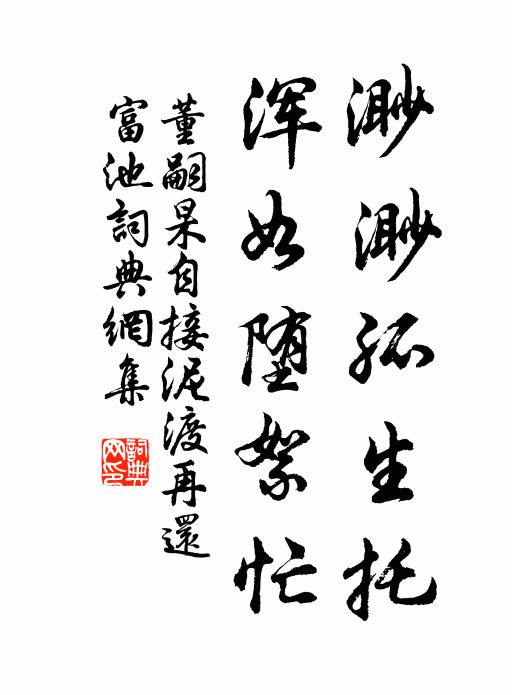 渺渺孤生托
浑如堕絮忙
董嗣杲自接泥渡再還
富池詞典網集
詞典网印